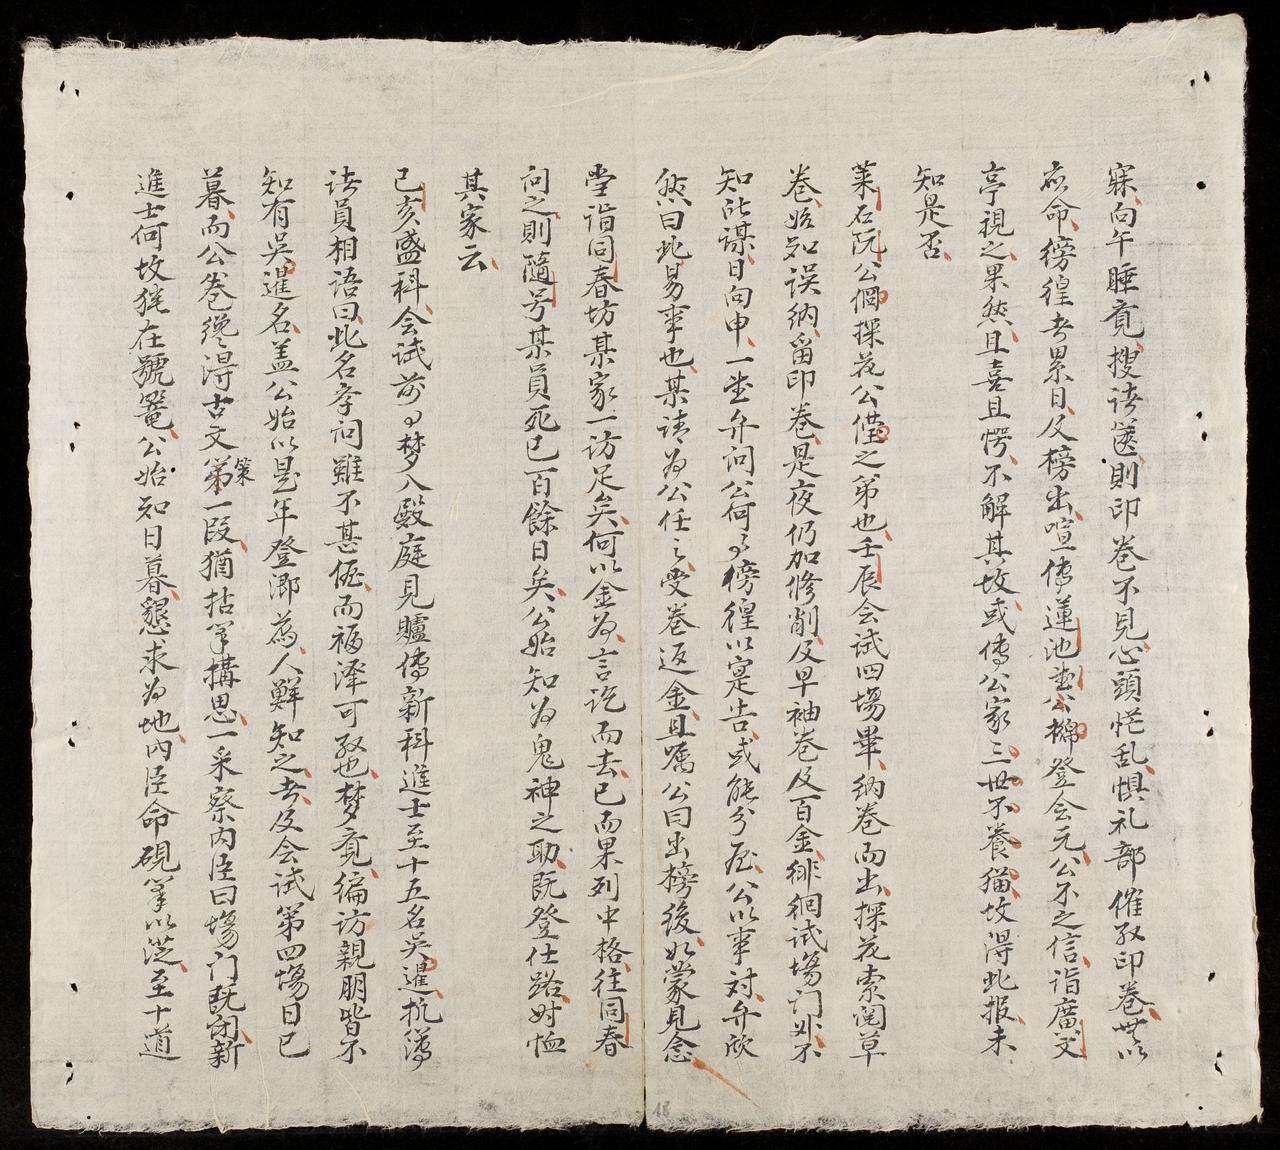 寐、向午睡覔、搜诸篋、則印卷不見、心頭恾乱、惧礼部催取印卷、無以
应命、徬徨者累日、及榜出、喧傳蓮池𫮿公櫛登会元、公不之信、詣廣文
亭視之果然、且喜且愕、不解其故、或傳公家三世不養猫、故得此报、未
知是否、
萊石阮公倜探花公僜之弟也、壬辰会试四塲畢、纳卷而出、探花索阅草
卷、始知误纳、畱印卷、是夜仍加修削、及早袖卷及百金、徘徊试塲门外、不
知所謀、日向申、一𫮿弁问公何事徬徨、以寔告或能分厄、公以事対、弁欣
然曰此易事也、某请为公任之、受卷返金、且嘱公曰、出榜後、如蒙見念
堂詣同春坊某家一访足矣、何以金为、言讫而去、已而果列中格、往同春
问之、則隨号某員死已百餘日矣、公始知为鬼神之助、既登仕路、対恤
其家云、
己亥盛科、会试前事、梦入殿庭、見臚傳新科進士、至十五名吴暹、抗簿
诸員相語曰、此名孝问雖不甚優、而福泽可取也、梦覔、徧访親朋、皆不
知有吴暹名、盖公始以是年登鄉荐、人鮮知之者、及会试第四塲、日已
暮、而公卷纔得古文策第一段、猶拈筆搆思、一采察内臣曰、塲门既闭、新
進士何故犹在號篭、公始知日暮、懇求为地、内臣命硯筆以凂、至十道